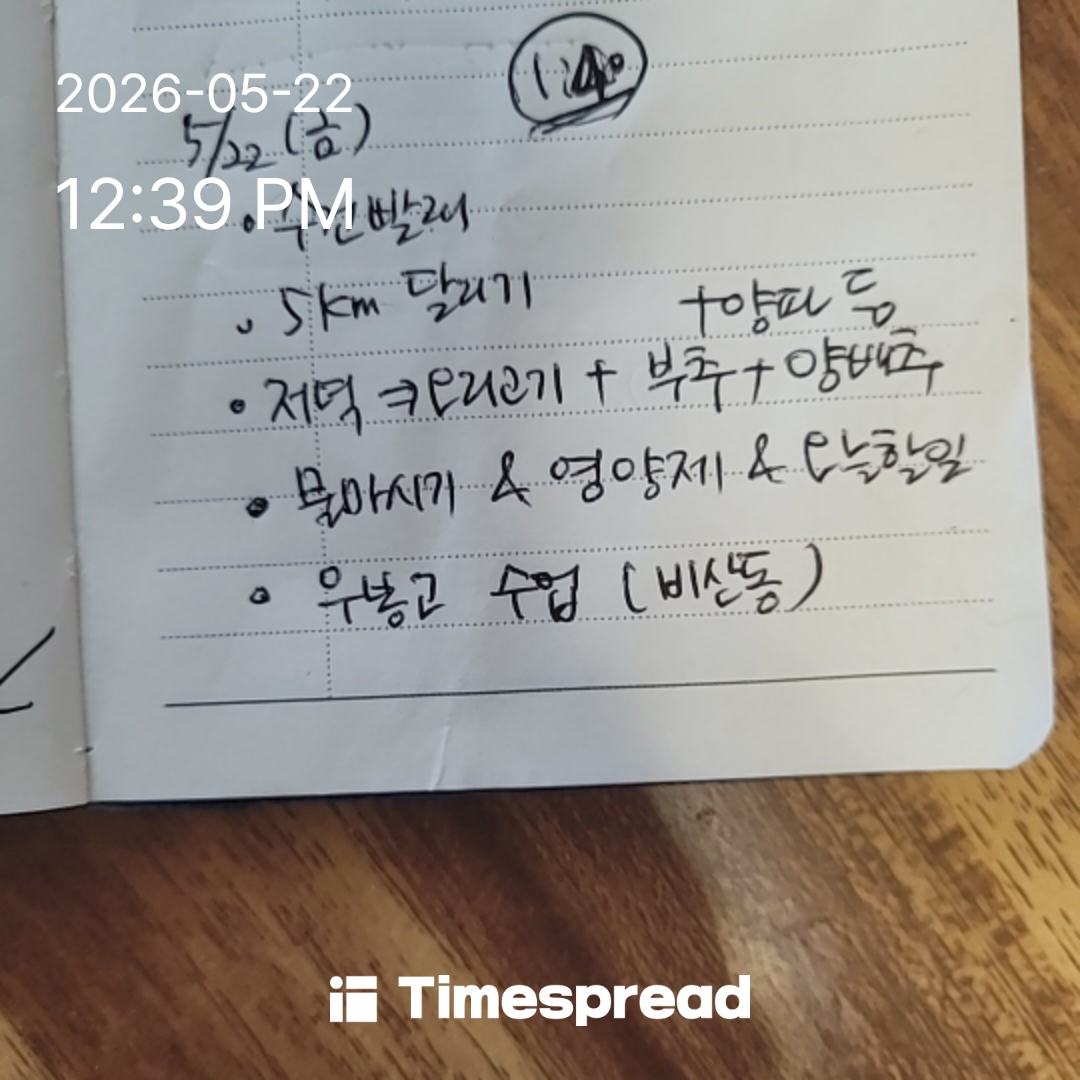 2026-05-22
5/22 (금)
12:39 PM
• 수건빨래
• 5km 달리기
+양파 등
• 저녁 ⇒ 오리고기 + 부추 + 양배추
• 물마시기 & 영양제 & 오늘할일
• 우봉고 수업 (비산동)
Timespread